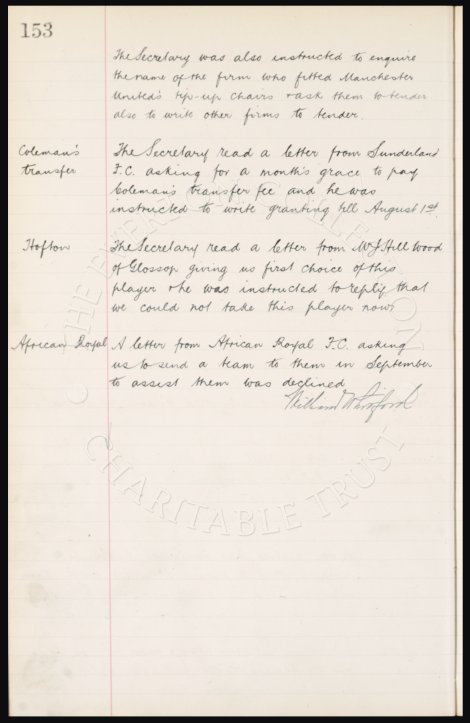 153
The Secretary was also instructed to enquire
the name of the firm who fitted Manchester
United's tip-up chairs & ask them to tender
also to write other firms to tender.
Coleman's
transfer
The Secretary read a letter from Sunderland
F.C. asking for a month's grace to pay
Coleman's transfer fee and he was
instructed to write granting till August 1st.
Hofton
The Secretary read a letter from Mr J Hill Wood
of Glossop giving us first choice of this
player & he was instructed to reply that
we could not take this player now.
African Royal
A letter from African Royal F.C. asking
us to send a team to them in September
to assist them was declined
William Whitford
THE EVERTON
CHARITABLE TRUST